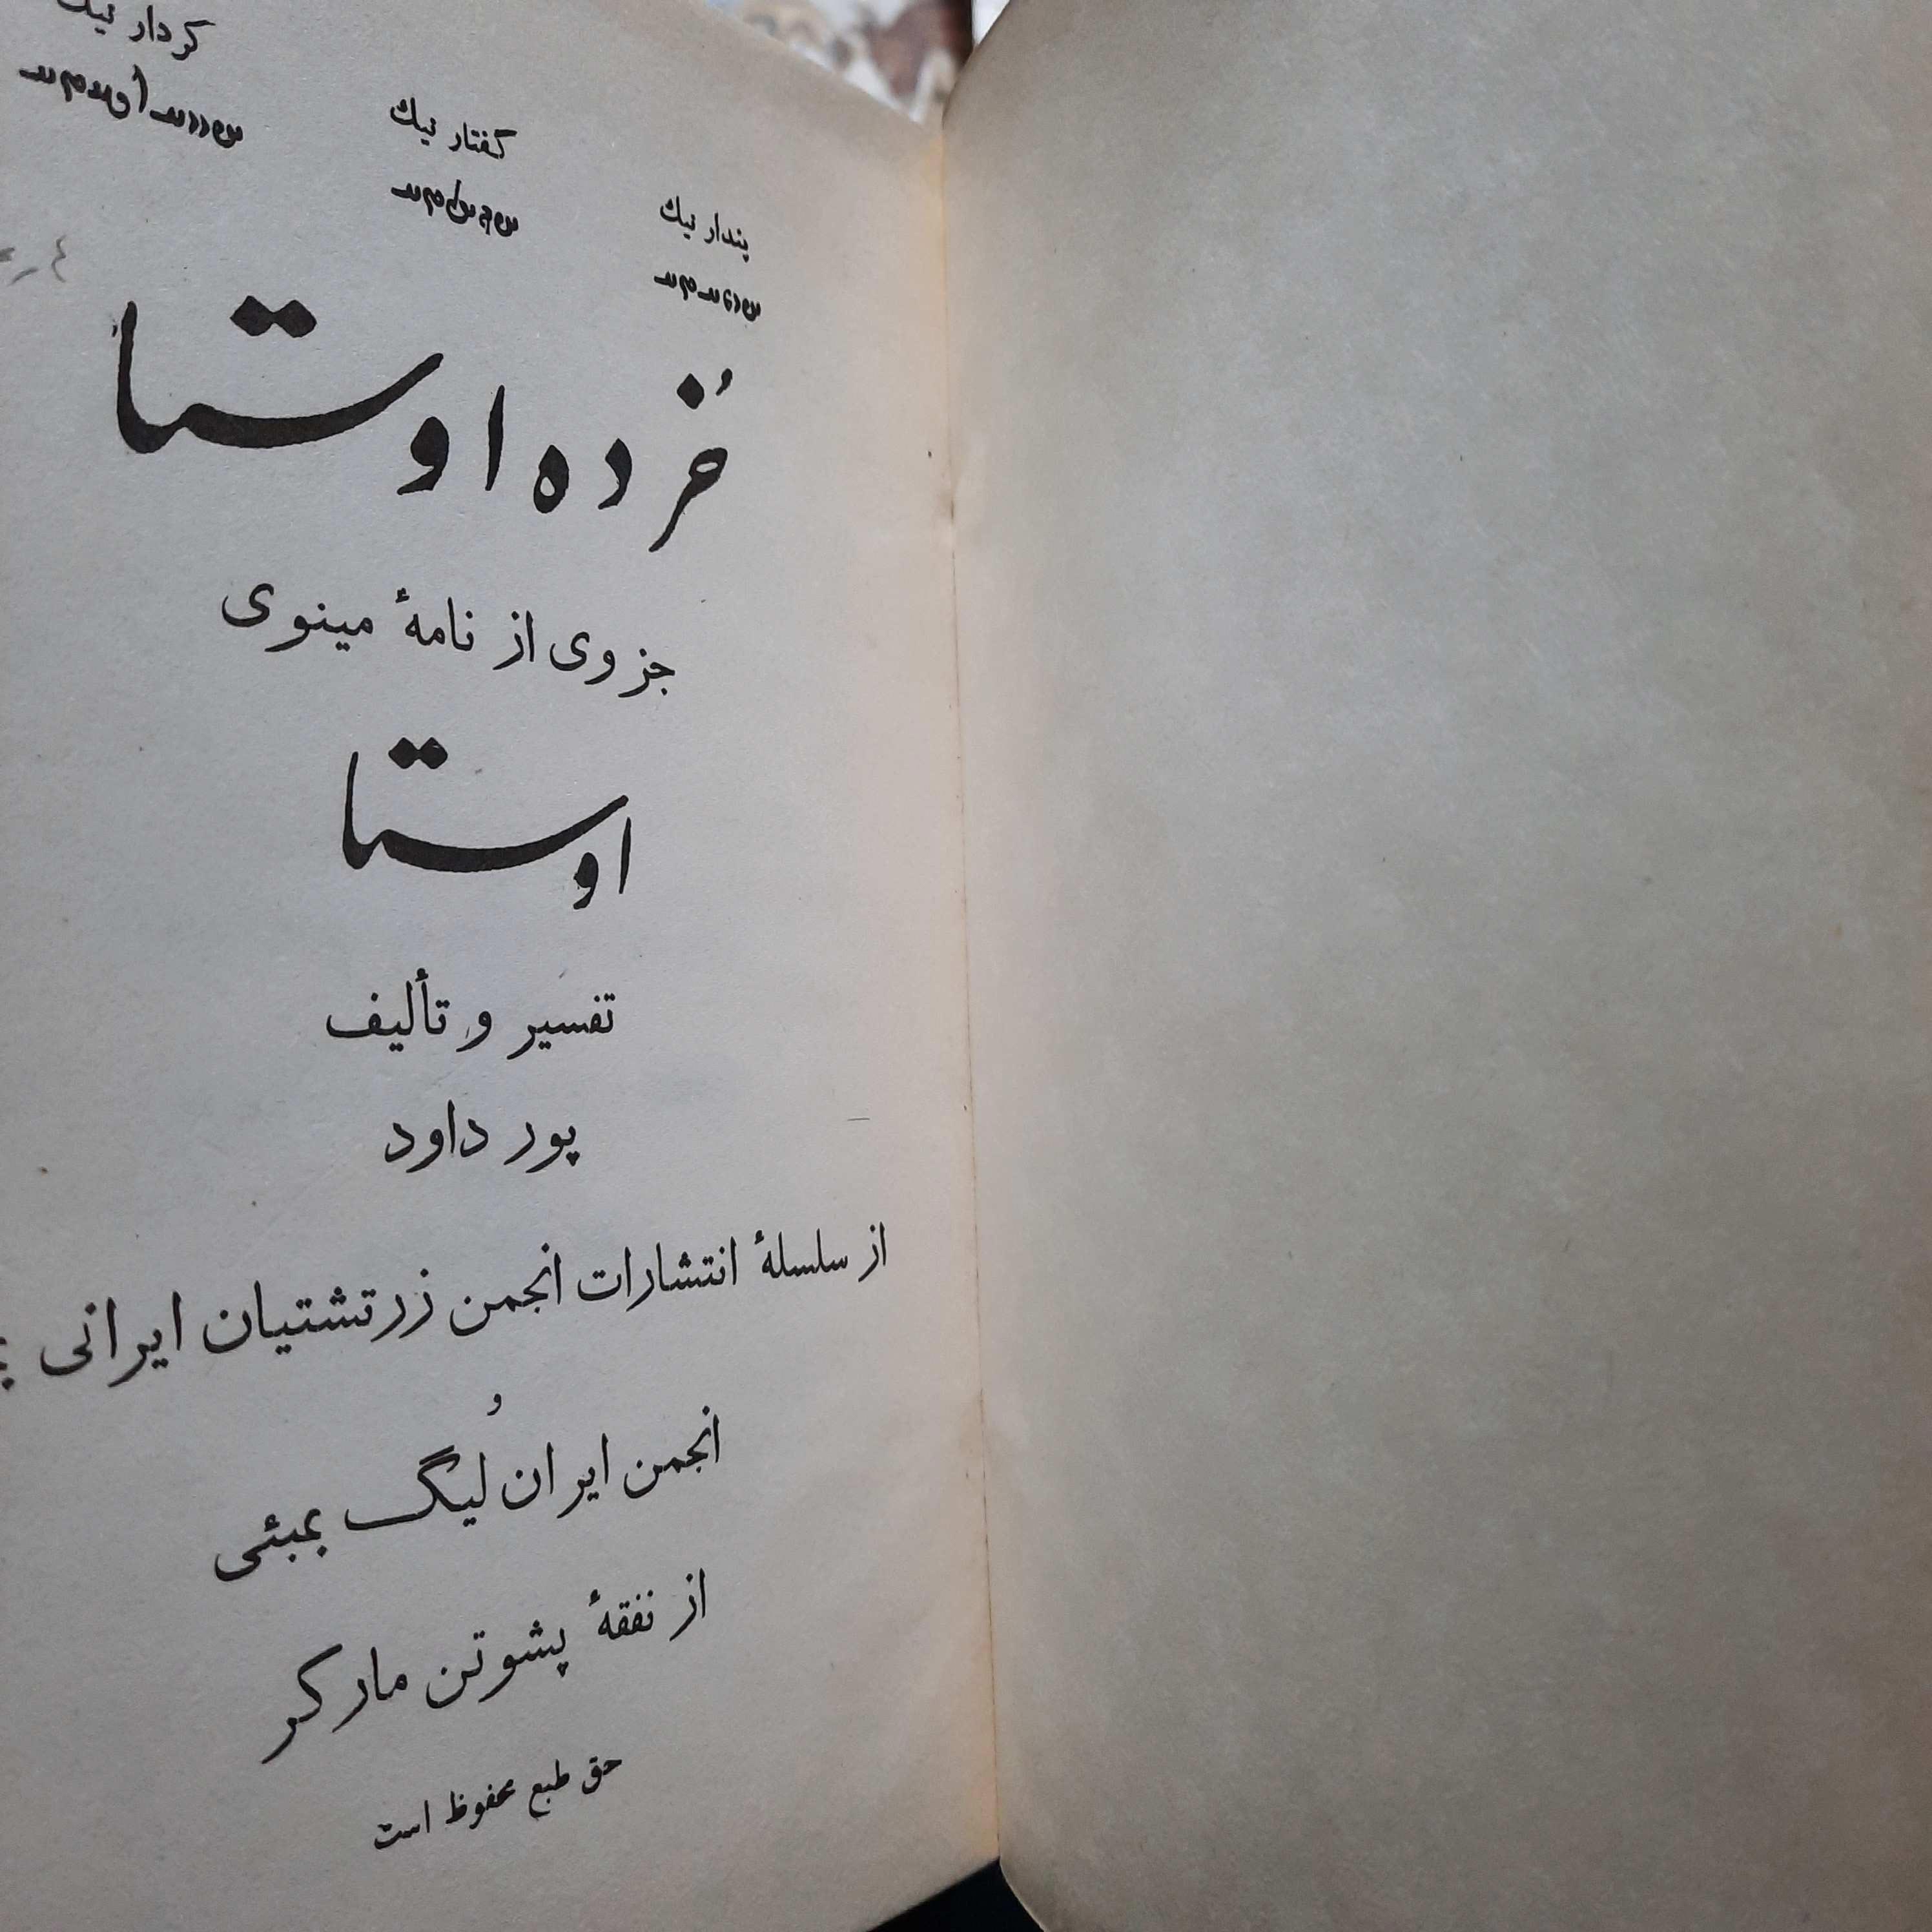 پندار نیك گفتار نیك کردار نیك
خرده اوستا
جزوی از نامهٔ مینوی
اوستا
تفسیر و تألیف
پور داود
از سلسلهٔ انتشارات انجمن زرتشتیان ایرانی
و
انجمن ایران لیگ بمبئی
از نفقهٔ پشوتن مارکر
حق طبع محفوظ است